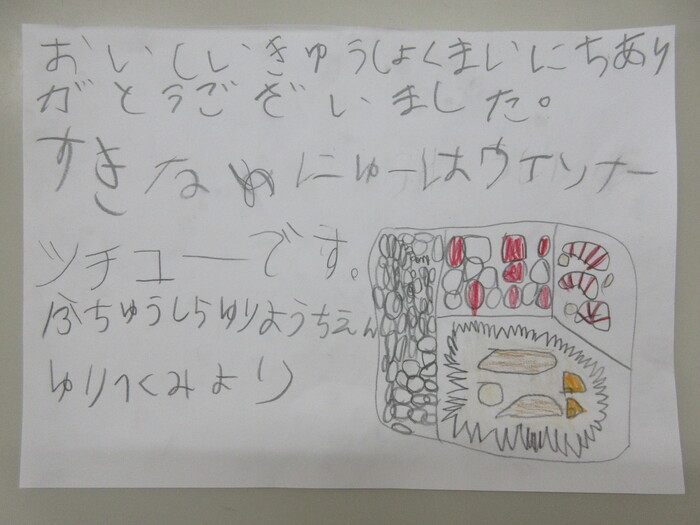 おいしいきゅうしょくまいにちあり
がとうございました。
すきなめにゅーはウインナー
シチューです。
ふちゅうしらゆりようちえん
ゆりぐみより